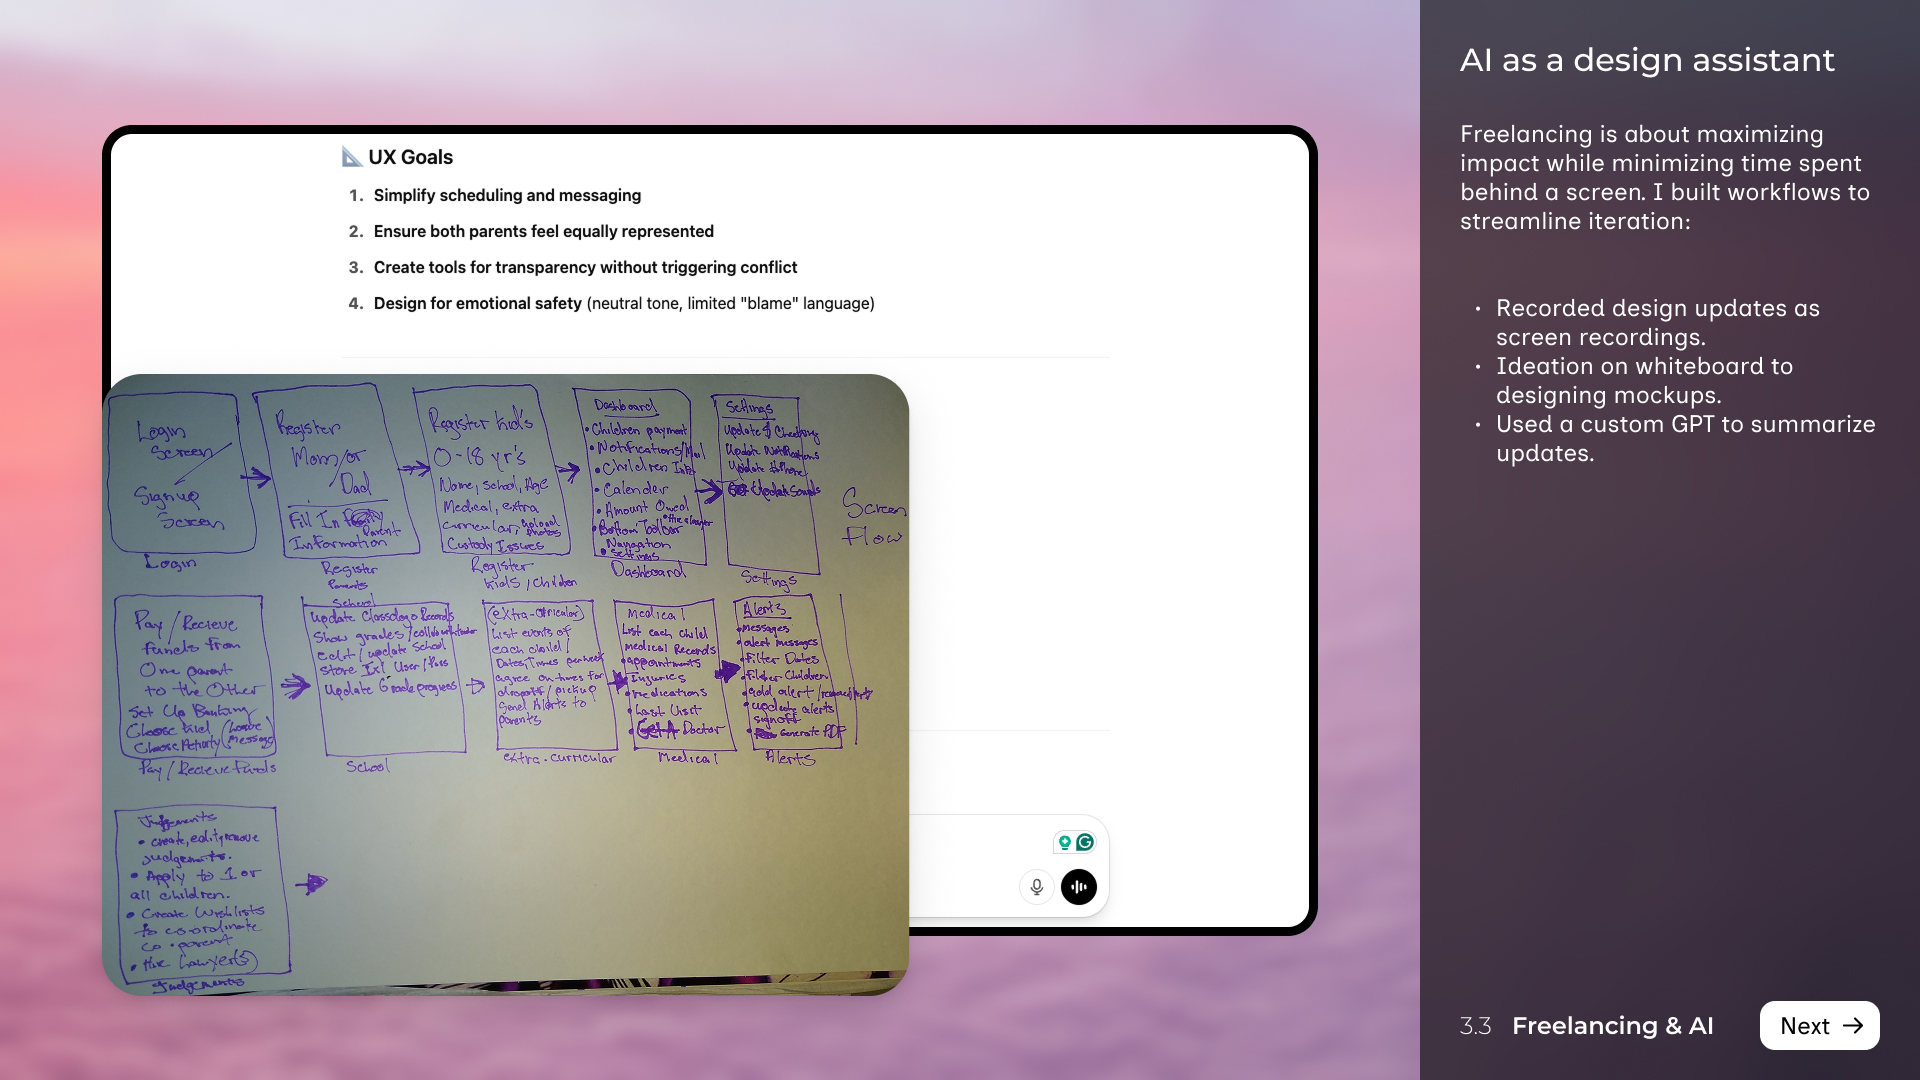 📐 UX Goals
1. Simplify scheduling and messaging
2. Ensure both parents feel equally represented
3. Create tools for transparency without triggering conflict
4. Design for emotional safety (neutral tone, limited "blame" language)
Login
Screen
Signup
Screen
Login
Register
Mom/or
Dad
Fill In
Parent
Information
Register
Parents
Register kid's
0-18 yr's
Name, school, Age
Medical, extra
curricular, upload
photos
Custody Issues
Register
kids/children
Dashboard
• Children payment
• Notifications/Mail
• Children Info
• Calender
• Amount Owed
• Hire a lawyer
• Bottom Toolbar
Navigation
• Settings
Dashboard
Settings
Update Notifications
Update Phone
Update Sounds
Settings
Screen
Flow
Pay/Recieve
funds from
One parent
to the Other
Set Up Banking
Choose kid
Choose Activity (Leave
Message)
Pay/Recieve Funds
School
Update Records
Show grades/
edit/update School
Store User/Pass
Update Grade progress
School
(extra-curricular)
List events of
each child/
Dates, Times per week
agree on times for
dropoff/pickup
Send Alerts to
parents
extra-curricular
Medical
List each child
medical Records
• appointments
• Injuries
• medications
• Last Visit
• Doctor
Medical
Alerts
• messages
• alert messages
• Filter Dates
• Filter Children
• add alert/
• update alerts
signoff
• Generate PDF
Alerts
Judgements
• create, edit, remove
judgements.
• Apply to 1 or
all children.
• Create Wishlists
to coordinate
co-parent
• Hire Lawyer(s)
Judgements
AI as a design assistant
Freelancing is about maximizing
impact while minimizing time spent
behind a screen. I built workflows to
streamline iteration:
• Recorded design updates as
screen recordings.
• Ideation on whiteboard to
designing mockups.
• Used a custom GPT to summarize
updates.
3.3 Freelancing & AI
Next →